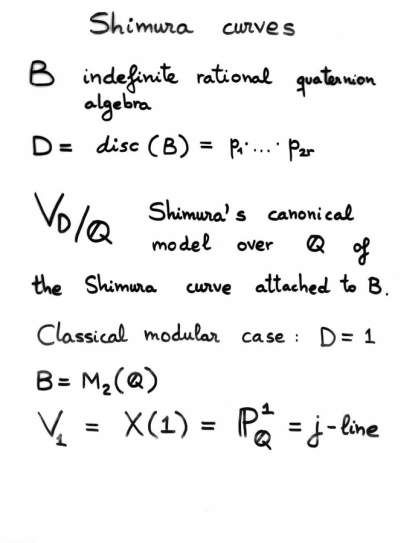 Shimura curves
B indefinite rational quaternion
algebra
D = disc (B) = p₁ · ... · p₂ᵣ
V_D/Q Shimura's canonical
model over Q of
the Shimura curve attached to B.
Classical modular case : D = 1
B = M₂(Q)
V₁ = X(1) = P¹_Q = j-line